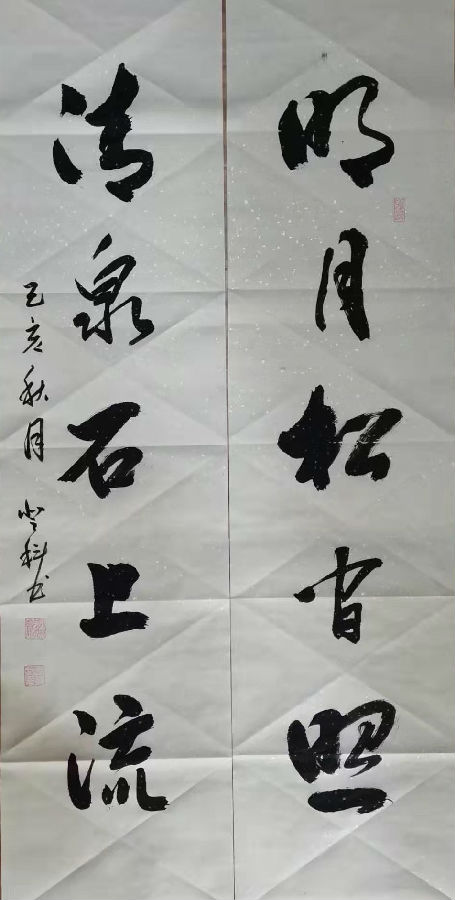 明月松间照
清泉石上流
己亥秋月 登科书